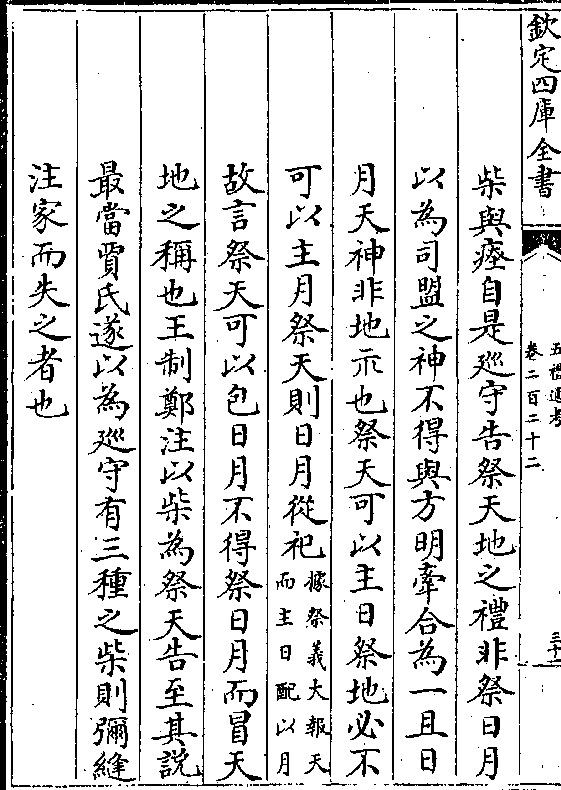 欽定四庫全書
五禮通考
卷二百二十二
柴與瘞自是廵守告祭天地之禮非祭日月
以為司盟之神不得與方明牽合為一且日
月天神非地示也祭天可以主日祭地必不
可以主月祭天則日月從祀據祭義大報天而主日配以月
故言祭天可以包日月不得祭日月而冒天
地之稱也王制鄭注以柴為祭天告至其說
最當賈氏遂以為廵守有三種之柴則彌縫
注家而失之者也